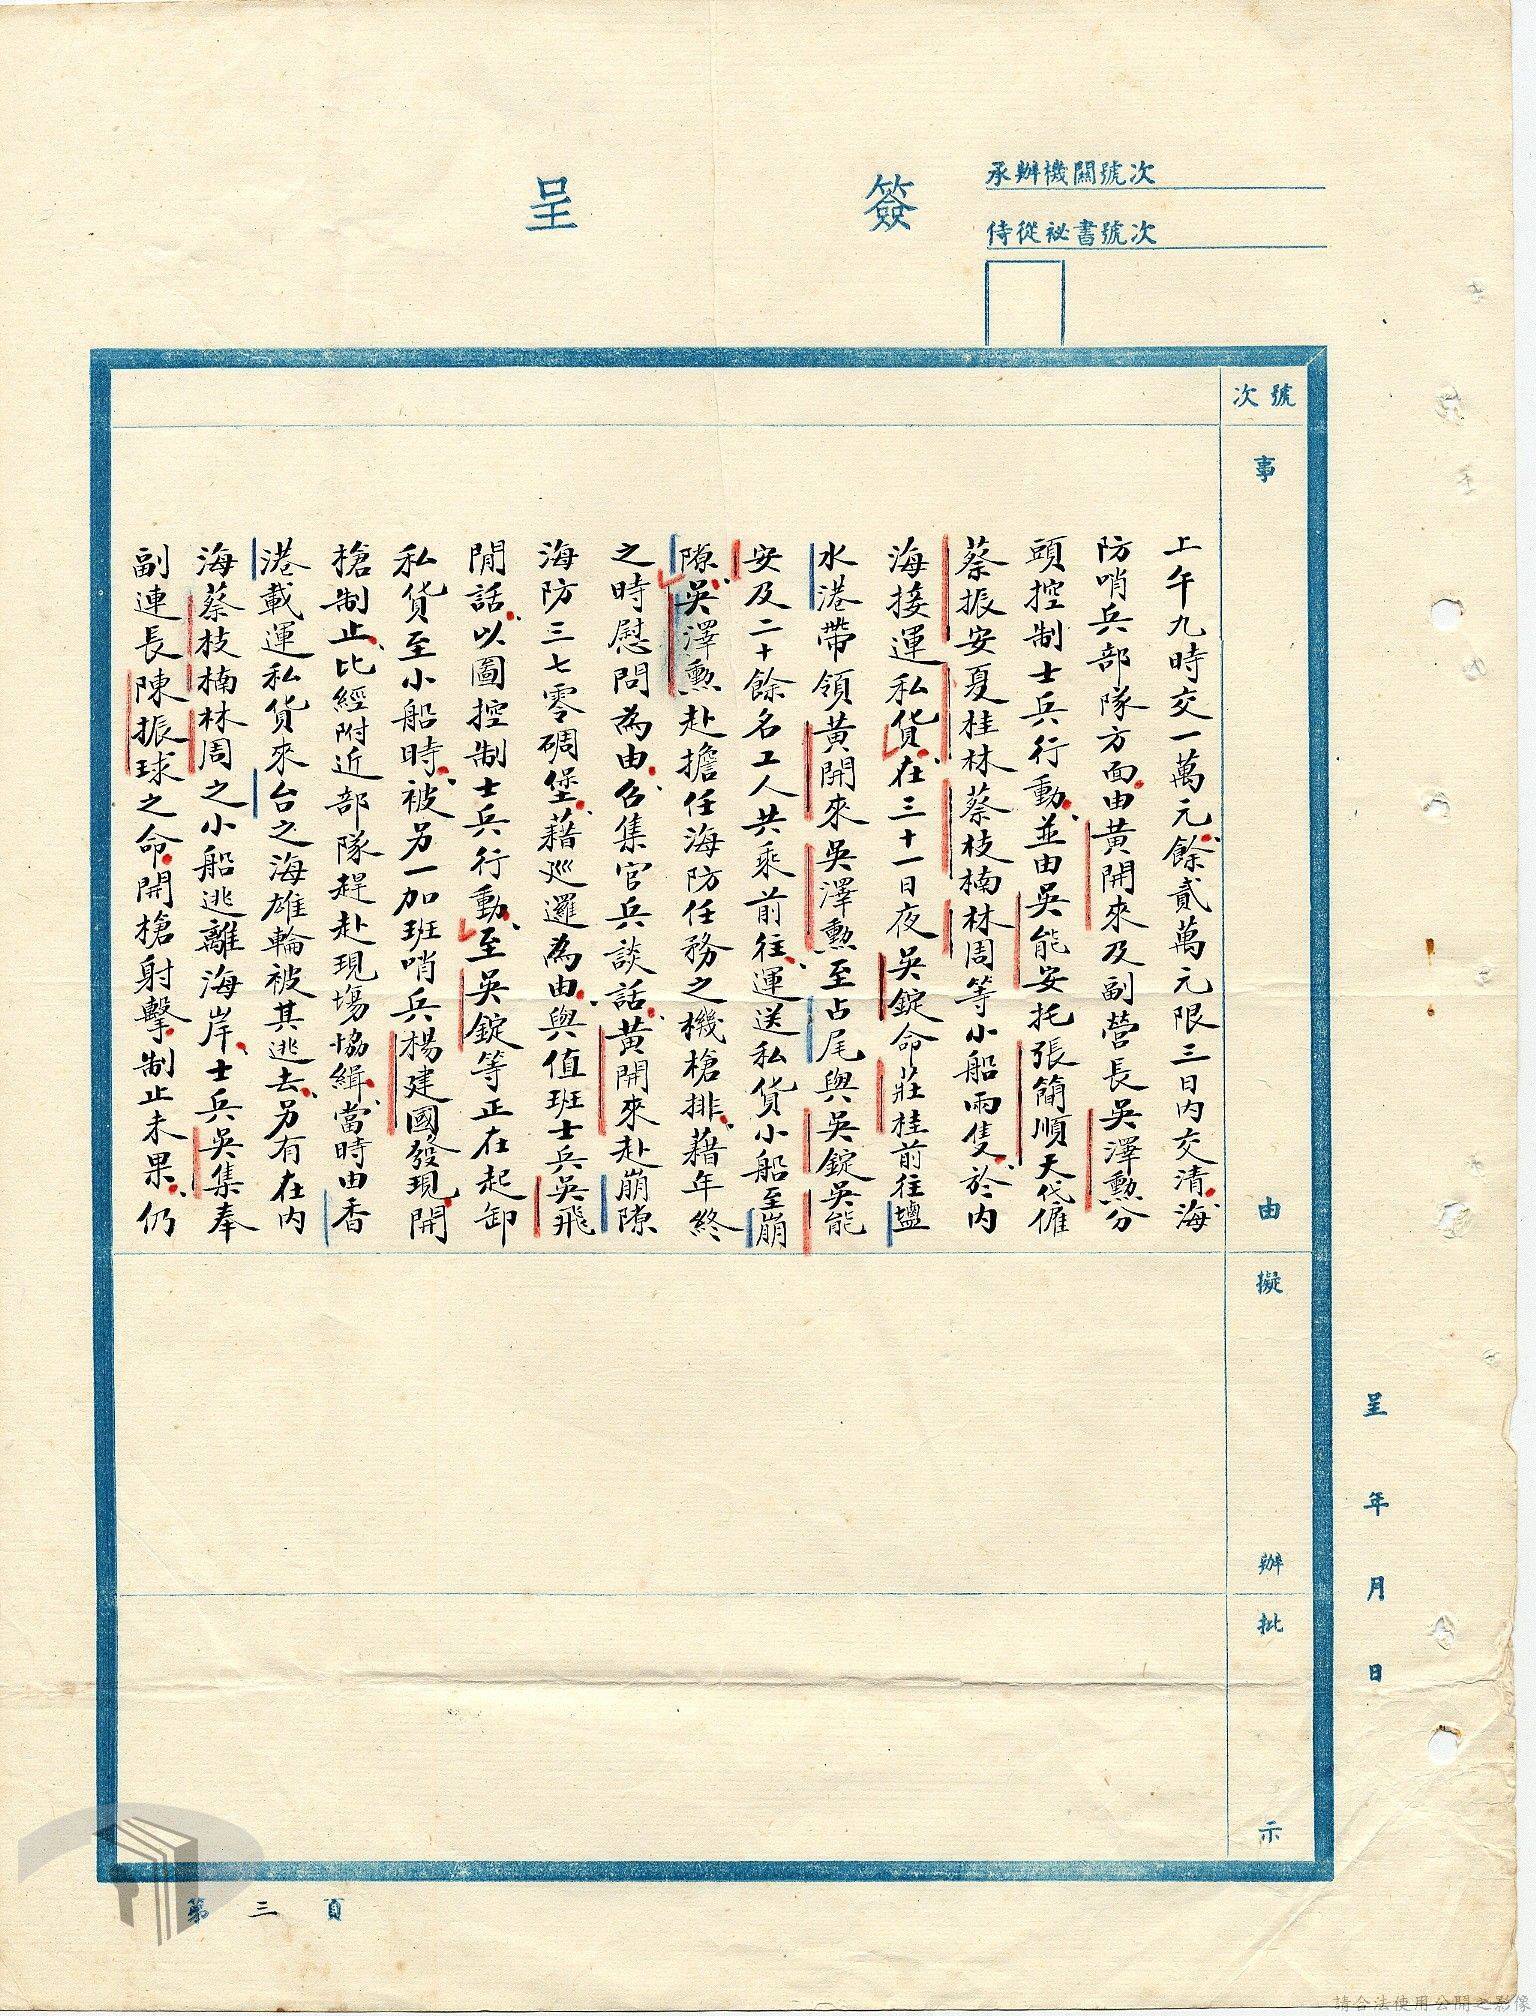 承辦機關號次
侍從祕書號次
簽呈
號次
事由
擬辦
批示
上午九時交一萬元、餘貳萬元限三日內交清、海
防哨兵部隊方面、由黃開來及副營長吳澤勲分
頭控制士兵行動、並由吳能安托張簡順天代僱
蔡振安夏桂林蔡枝楠林周等小船兩隻、於內
海接運私貨、在三十一日夜吳錠命莊桂前往塩
水港帶領黃開來吳澤勲至占尾與吳錠吳能
安及二十餘名工人共乘前往、運送私貨小船至崩
隙、吳澤勲赴擔任海防任務之機槍排、藉年終
之時慰問為由、召集官兵談話、黃開來赴崩隙
海防三七零碉堡、藉巡邏為由、與值班士兵吳飛
閒話、以圖控制士兵行動、至吳錠等正在起卸
私貨至小船時、被另一加班哨兵楊建國發現、開
槍制止、比經附近部隊趕赴現塲協緝、當時由香
港載運私貨來台之海雄輪被其逃去、另有在內
海蔡枝楠林周之小船逃離海岸、士兵吳集奉
副連長陳振球之命、開槍射擊、制止未果、仍
呈年月日
第三頁
請合法使用公開之影像